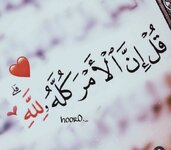 قُلْ إِنَّ ٱلْأَمْرَ كُلَّهُۥ لِلَّهِ
hooRO_